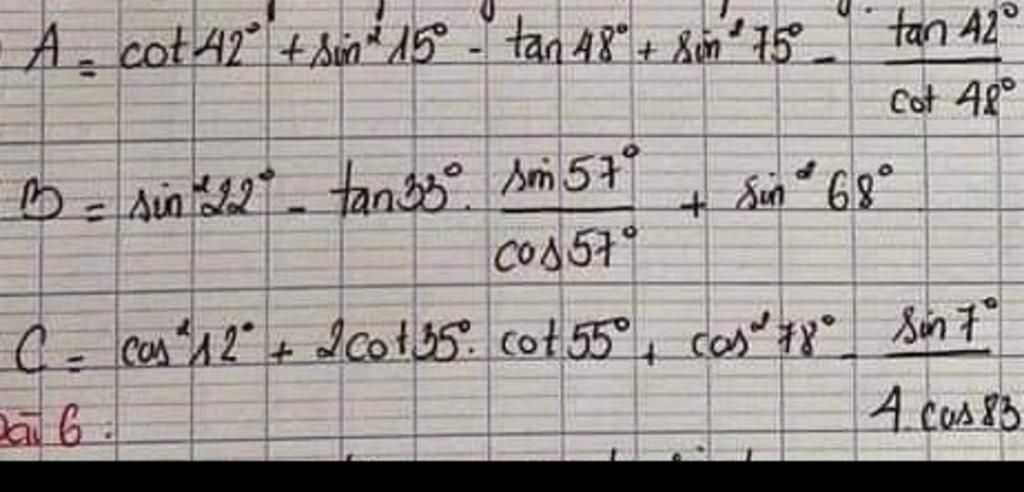 A = cot 42° + sin² 15° - tan 48° + sin² 75° - tan 42° / cot 48°
B = sin² 22° - tan 33° . sin 57° / cos 57° + sin² 68°
C = cos² 12° + 2cot 35° . cot 55° + cos² 78° - sin 7° / 4 cos 83
Bài 6 :